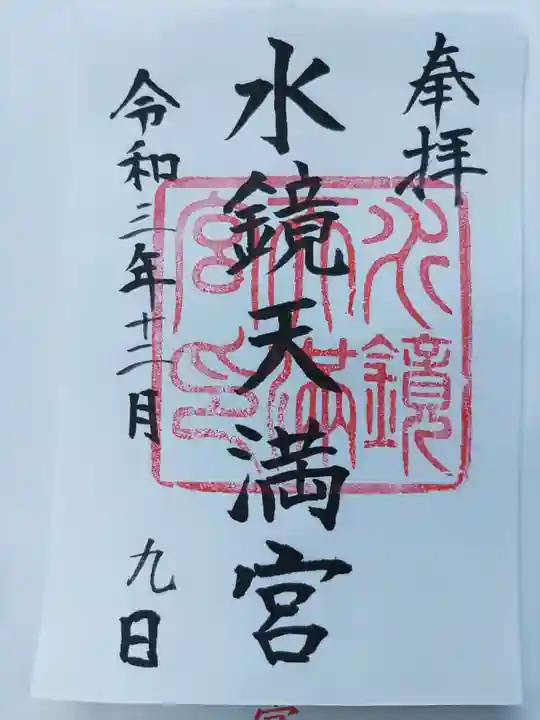 奉拝
水鏡天満宮
令和三年十二月 九日
水鏡
天満
宮印
宮